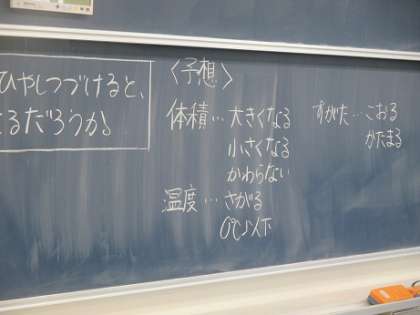 ひやしつづけると、
るだろうか。
〈予想〉
体積…大きくなる
小さくなる
かわらない
温度…さがる
0℃以下
すがた…こおる
かたまる